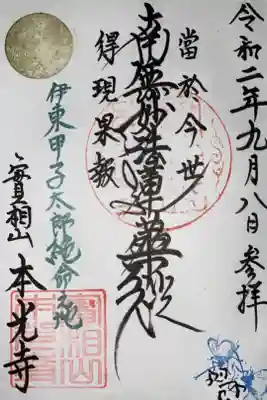 令和二年九月八日参拝
當於今世
南無妙法蓮華経
得現果報
伊東甲子太郎絶命之地
實相山
本光寺